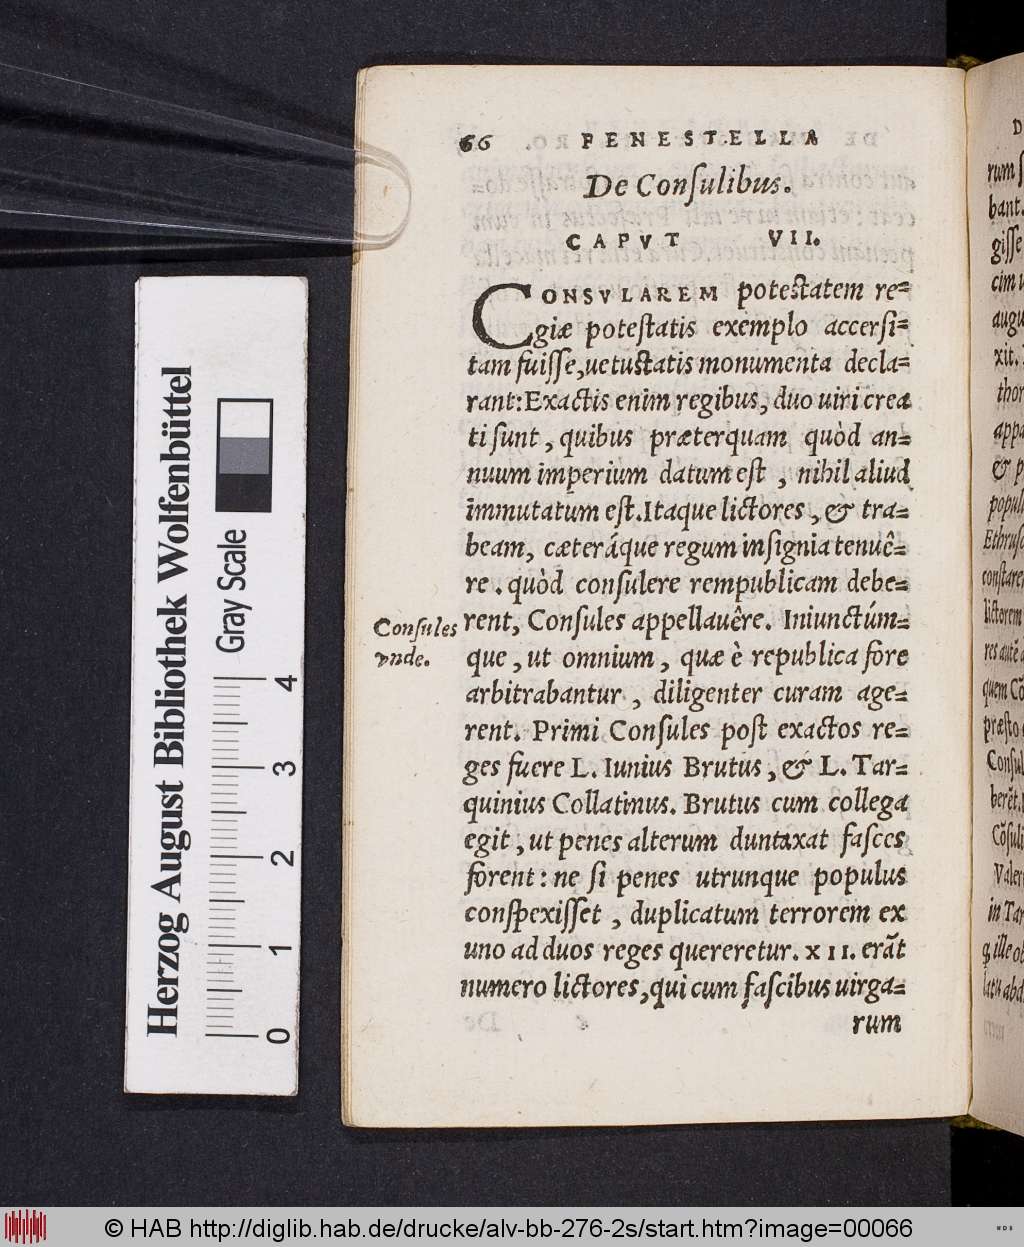 66 FENESTELLA
De Conſulibus.
CAPVT VII.
CONSVLAREM poteſtatem re=
giæ poteſtatis exemplo accerſi=
tam fuiſſe, uetuſtatis monumenta decla=
rant: Exactis enim regibus, duo uiri crea
ti ſunt, quibus præterquam quòd an=
nuum imperium datum eſt, nihil aliud
immutatum eſt. Itaque lictores, & tra=
beam, cæteráque regum inſignia tenuê=
re. quòd conſulere rempublicam debe=
rent, Conſules appellauêre. Iniunctúm=
que, ut omnium, quæ è republica fore
arbitrabantur, diligenter curam age=
rent. Primi Conſules poſt exactos re=
ges fuere L. Iunius Brutus, & L. Tar=
quinius Collatinus. Brutus cum collega
egit, ut penes alterum duntaxat faſces
forent: ne ſi penes utrunque populus
conſpexiſſet, duplicatum terrorem ex
uno ad duos reges quereretur. XII. erãt
numero lictores, qui cum faſcibus uirga=
rum
Conſules
vnde.
Herzog August Bibliothek Wolfenbüttel
Gray Scale
0 1 2 3 4
rum ſ
bant.
giſſe
cim u
augu
xit.
thor
appa
& p
popul
Ethruſc
conſtare
lictorem
res autẽ a
quem Cõ
præſto
Conſul
berẽt.
Cõſuli
Valer
in Tar
q. ille ob
latu abd
© HAB http://diglib.hab.de/drucke/alv-bb-276-2s/start.htm?image=00066
WDB